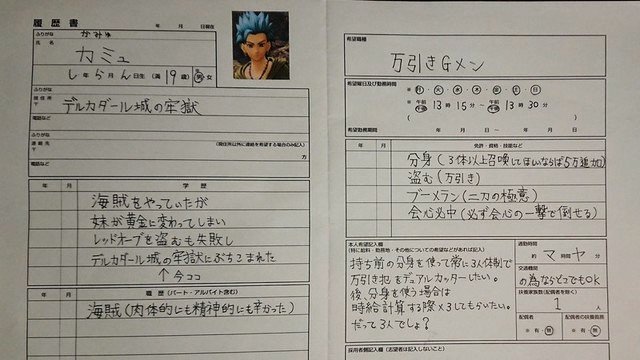 履歴書
年 月 日現在
ふりがな
かみゅ
氏名
カミュ
しねらん日生(満19歳) 男・女
ふりがな
現住所
〒
デルカダール城の牢獄
電話など
ふりがな
連絡先
(現住所以外に連絡を希望する場合のみ記入)
〒
方
電話など
年 月 学歴
海賊をやっていたが
妹が黄金に変わってしまい
レッドオーブを盗むも失敗し
デルカダール城の牢獄にぶちこまれた
↑今ココ
年 月 職歴(パート・アルバイト含む)
海賊(肉体的にも精神的にも辛かった)
希望職種
万引きGメン
希望曜日及び勤務時間
月・火・水・木・金・土・日
午前 午後 13時15分~午前 午後 13時30分
( )
希望勤務期間
年 月 日~ 年 月 日
年 月 免許・資格・技能など
分身(3体以上召喚してほしいならば5万追加)
盗む(万引き)
ブーメラン(二刀の極意)
会心必中(必ず会心の一撃で倒せる)
本人希望記入欄
(特に給料・勤務地・その他についての希望などがあれば記入)
持ち前の分身を使って常に3人体制で
万引き犯をデュアルカッターしたい。
後、分身を使う場合は
時給計算する際×3してもらいたい。
だって3人でしょ?
通勤時間
約 マ時間ヤ分
交通機関
の為ならどこでもOK
扶養家族数(配偶者を除く)
1人
配偶者
有・無
配偶者の扶養義務
有・無
採用者側記入欄(志望者は記入しないこと)